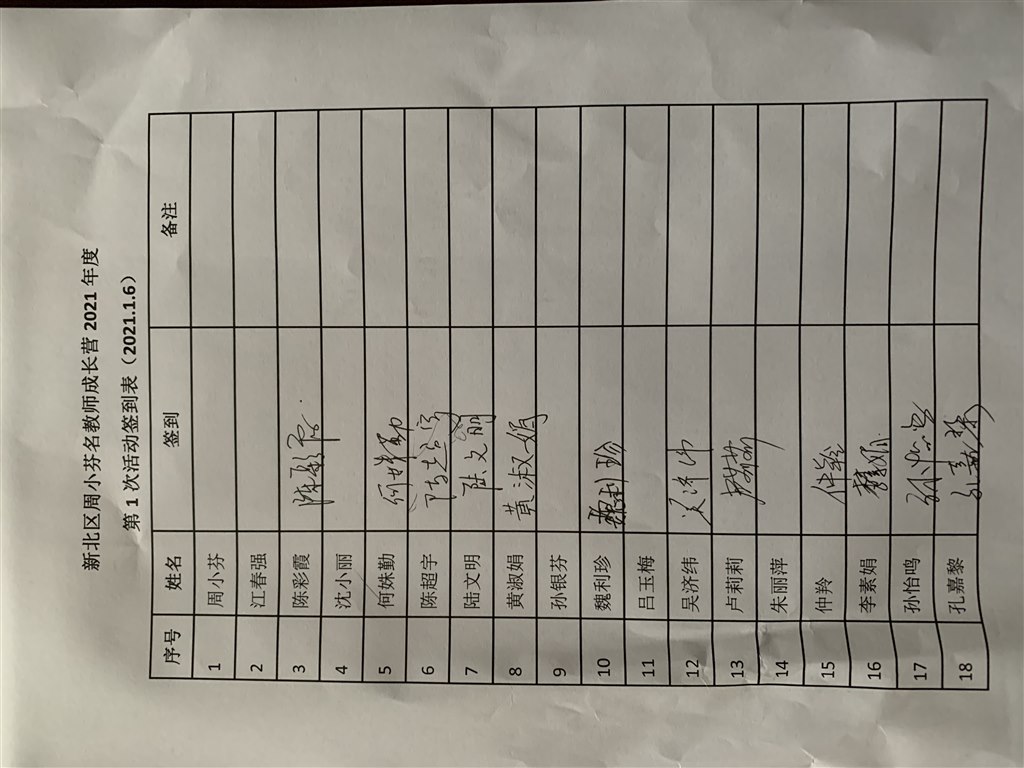 新北区周小芬名教师成长营 2021 年度
第 1 次活动签到表（2021.1.6）
序号 姓名 签到 备注
1 周小芬
2 江春强
3 陈彩霞 陈彩霞
4 沈小丽
5 何姝勤 何姝勤
6 陈超宇 陈超宇
7 陆文明 陆文明
8 黄淑娟 黄淑娟
9 孙银芬
10 魏利珍 魏利珍
11 吕玉梅
12 吴济纬 吴济纬
13 卢莉莉 卢莉莉
14 朱丽萍
15 仲羚 仲羚
16 李素娟
17 孙怡鸣 孙怡鸣
18 孔嘉黎 孔嘉黎